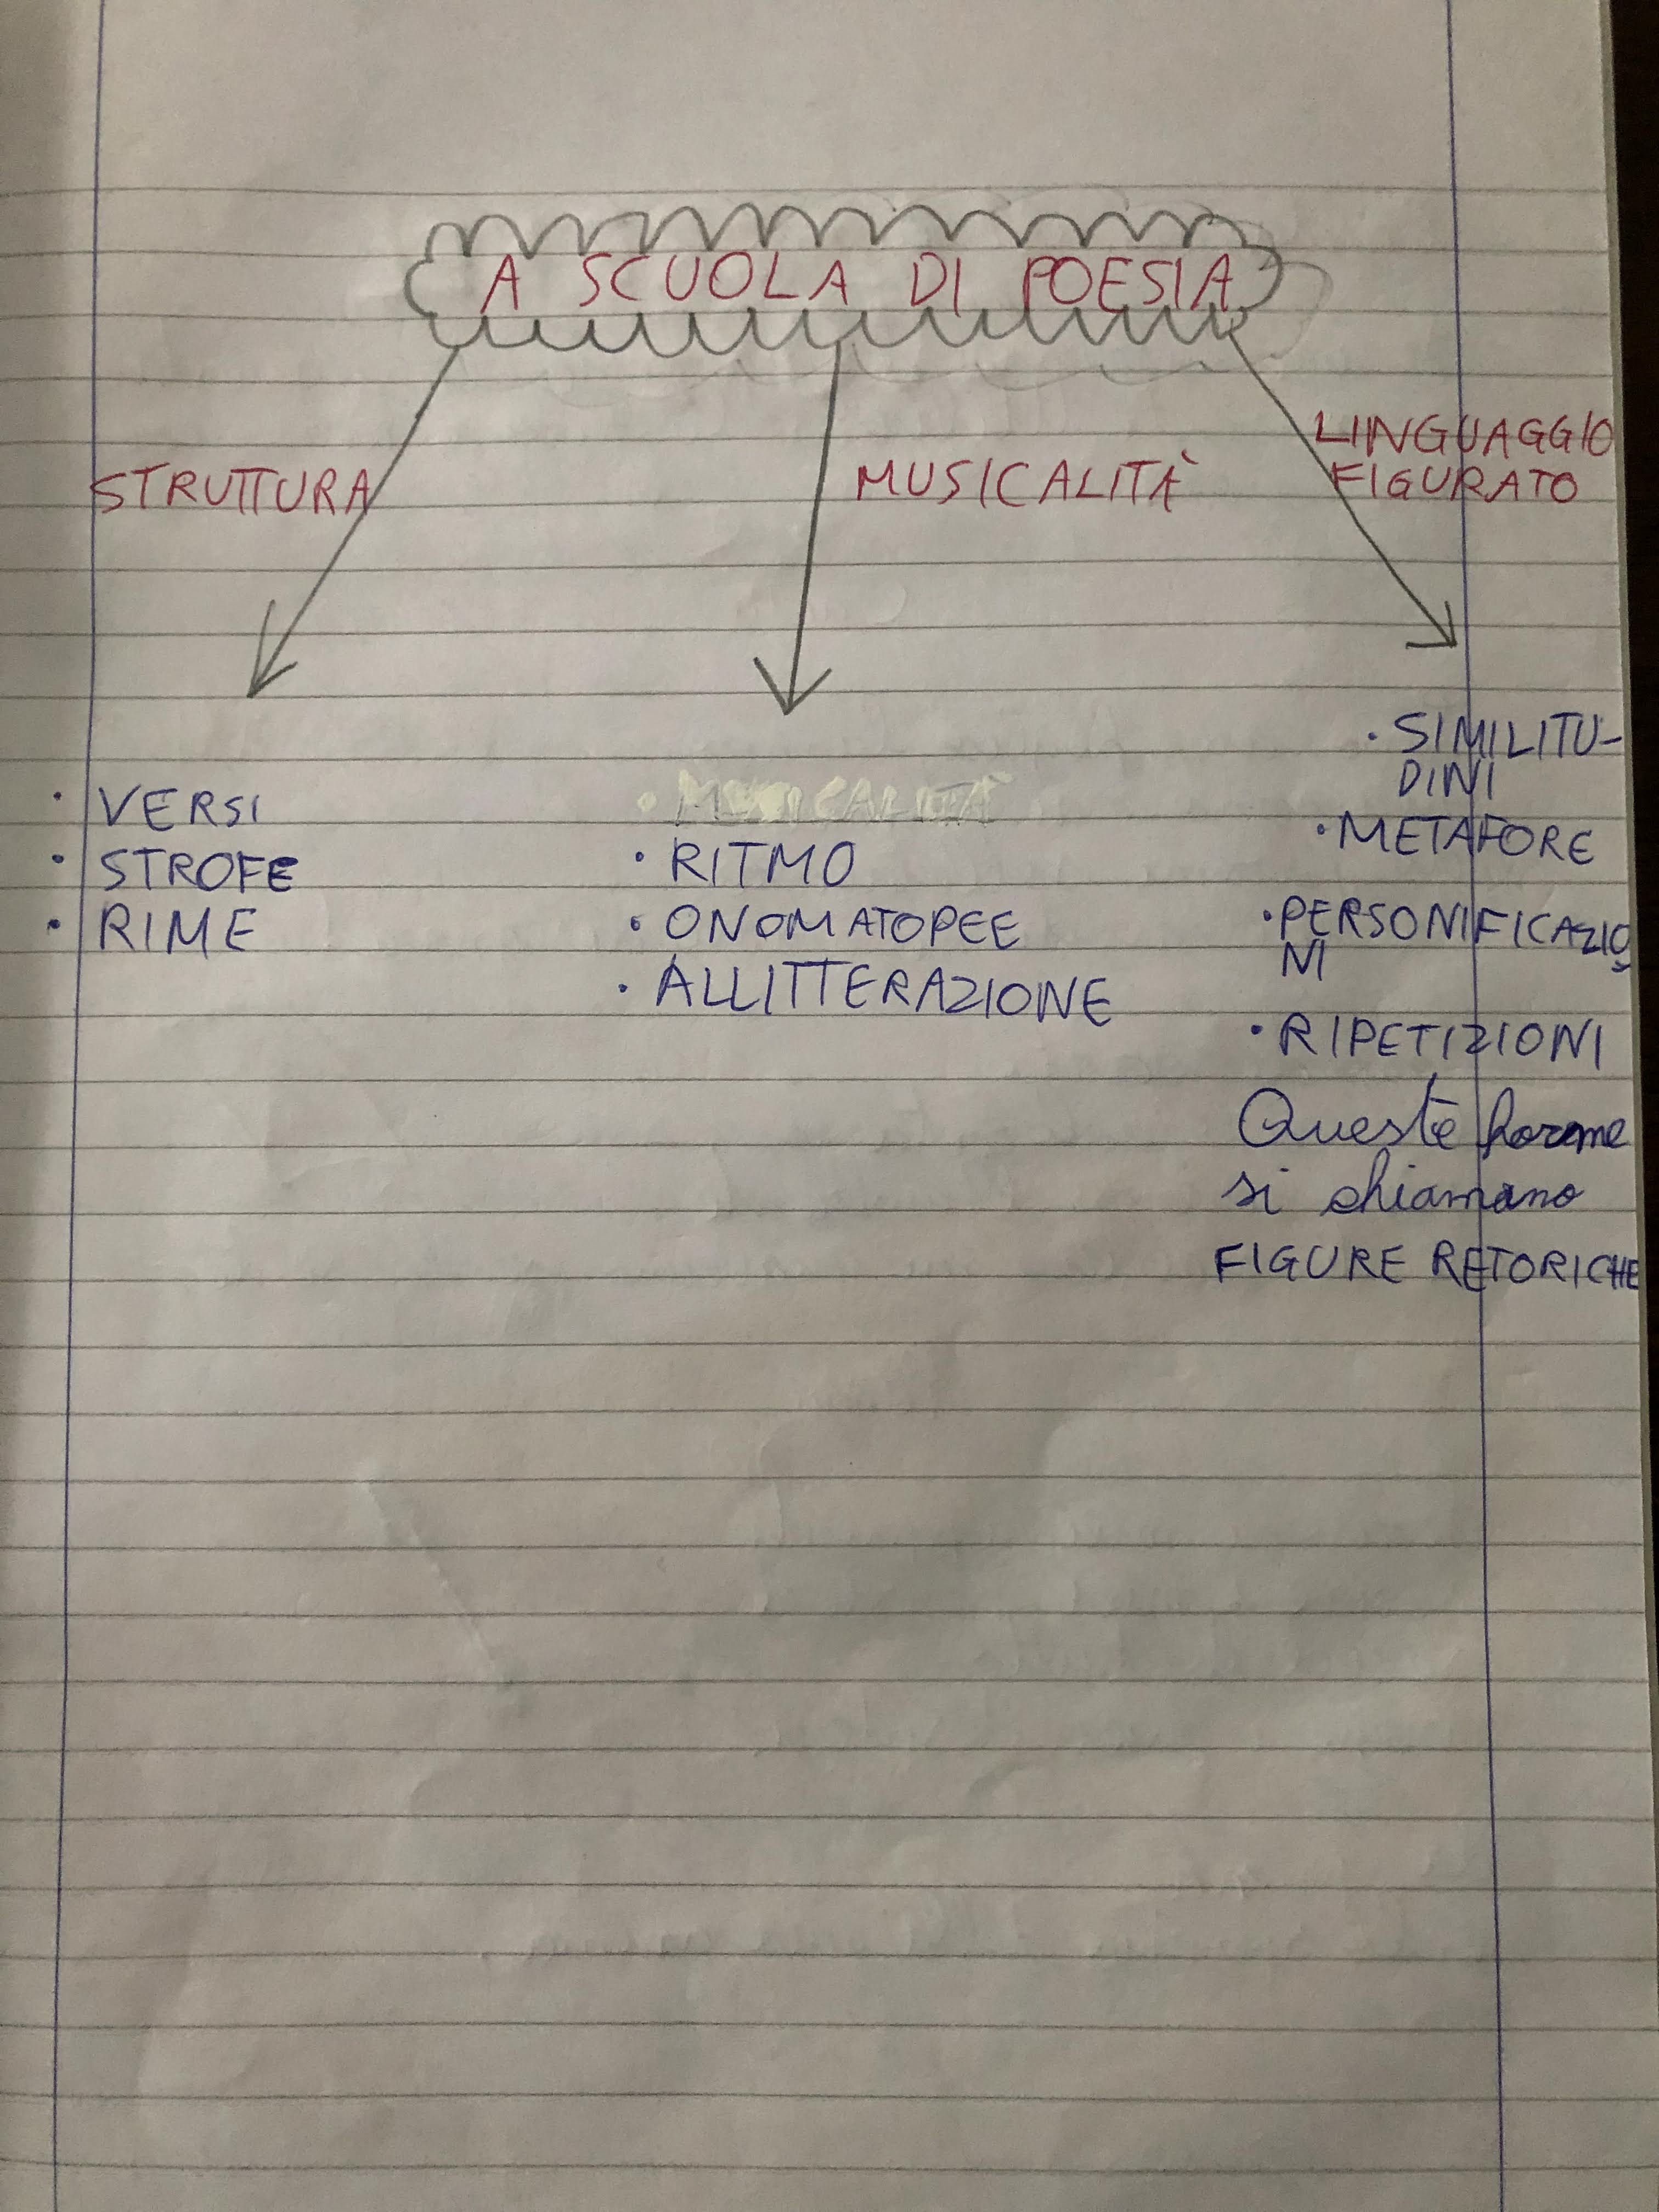 A SCUOLA DI POESIA
STRUTTURA
MUSICALITÀ
LINGUAGGIO
FIGURATO
· VERSI
· STROFE
· RIME
· MUSICALITÀ
· RITMO
· ONOMATOPEE
· ALLITTERAZIONE
· SIMILITU-
DINI
· METAFORE
· PERSONIFICAZIO
NI
· RIPETIZIONI
Queste forme
si chiamano
FIGURE RETORICHE